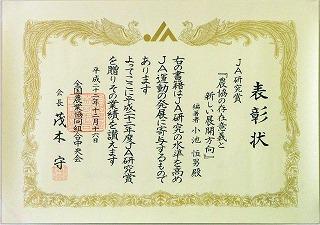 表彰状
JA研究賞
『農協の存在意義と
新しい展開方向』
編著者 小池恒男 殿
右の書籍はJA研究の水準を高め
JA運動の発展に寄与するもので
あります
よってここに平成二十二年度JA研究賞
を贈りその業績を讃えます
平成二十二年十二月十六日
全国農業協同組合中央会
会長 茂木 守